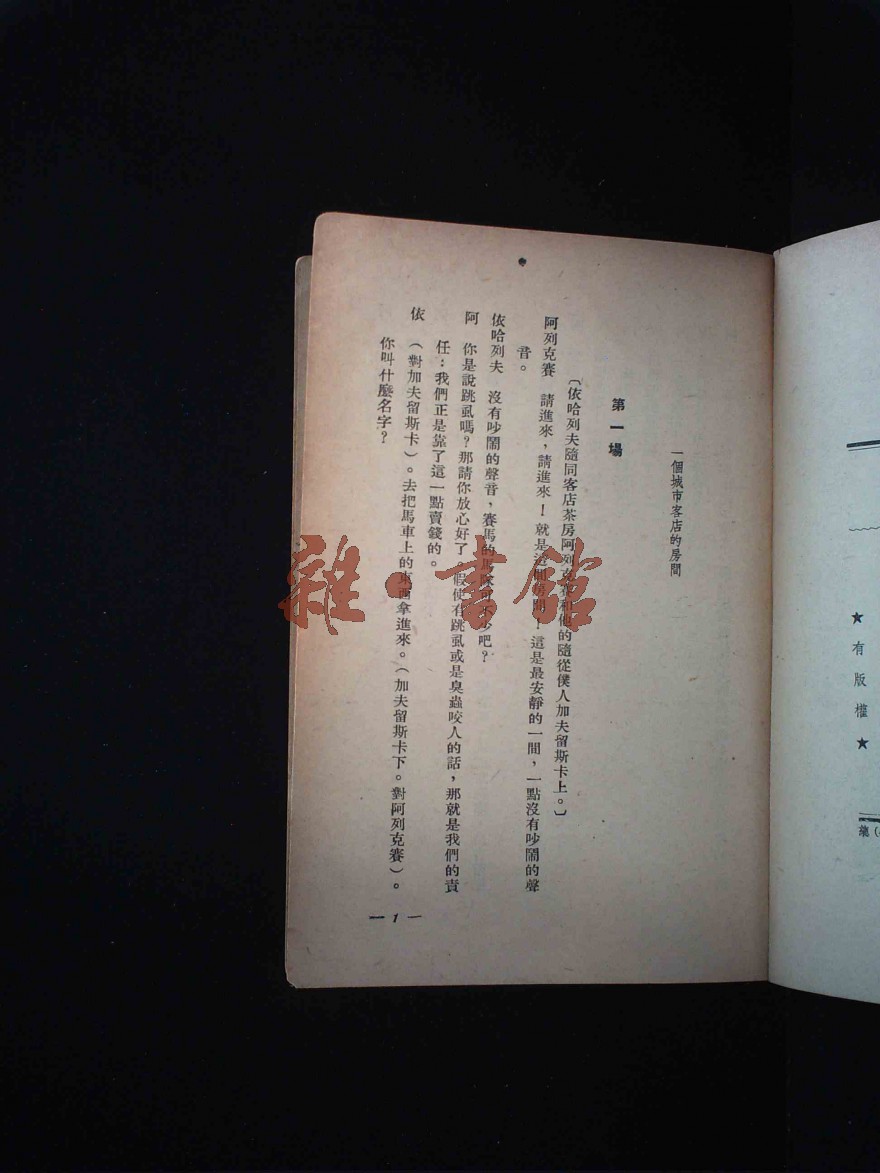 一個城市客店的房間
第一場
〔依哈列夫隨同客店茶房阿列克賽和他的隨從僕人加夫留斯卡上。〕
阿列克賽　請進來，請進來！就是這間房間！這是最安靜的一間，一點沒有吵鬧的聲
音。
依哈列夫　沒有吵鬧的聲音，賽馬的馬隊可不少吧？
阿　你是說跳虱嗎？那請你放心好了。假使有跳虱或是臭蟲咬人的話，那就是我們的責
任：我們正是靠了這一點賣錢的。
依　（對加夫留斯卡）。去把馬車上的東西拿進來。（加夫留斯卡下。對阿列克賽）。
你叫什麼名字？
— 1 —
★有版權★
雜·書館